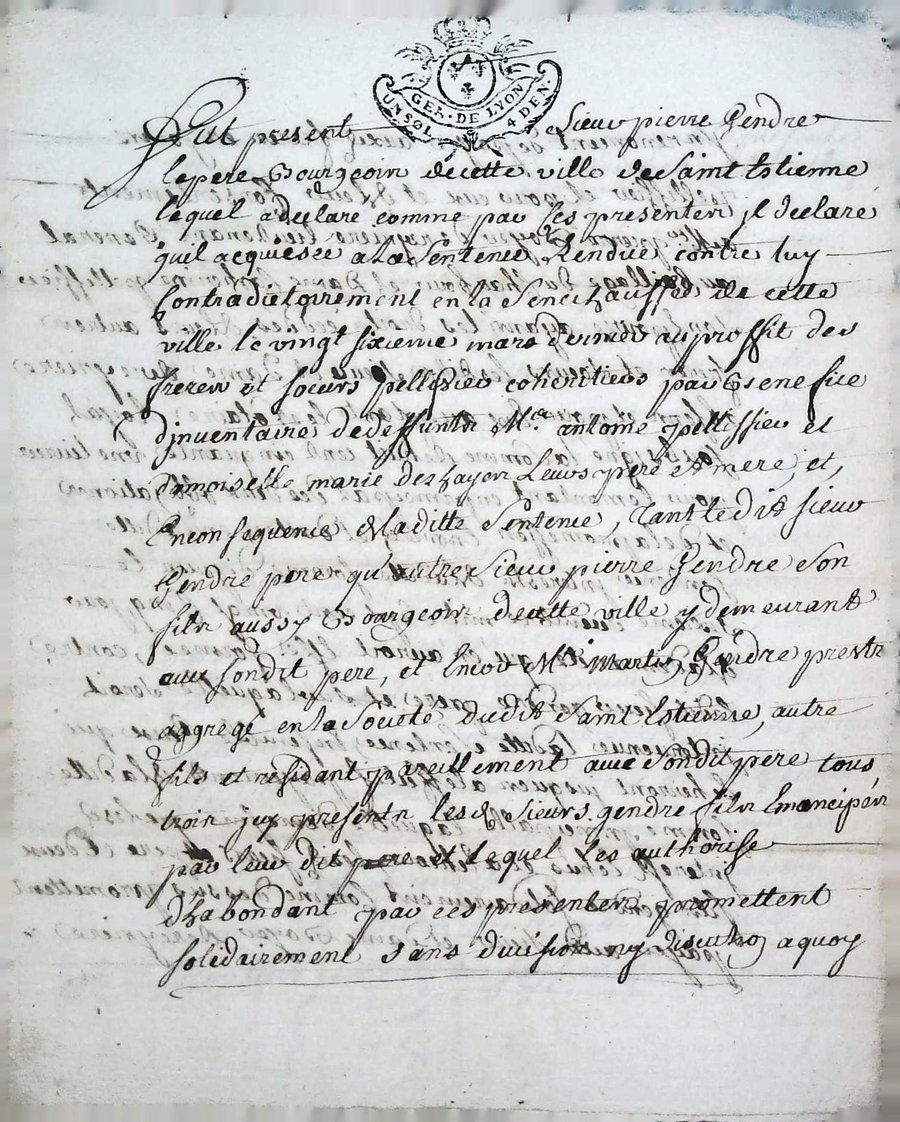 GEN. DE LYON
UN SOL 4 DEN.
Fut present Sieur pierre Gendre
le pere Bourgeois de cette ville de Saint Estienne
lequel a declaré comme par les presentes jl declare
quil acquiesce a la Sentence Rendue contre luy
Contradictoirement en la Senechaussée de cette
ville le vingt sixieme mars dernier au proffit des
freres et soeurs pellissier coheritiers par Benefice
djnventaire de deffunts Me. antoine pellissier et
damoiselle marie deshayes Leurs pere et mere, et,
En consequence de laditte Sentence, Tant ledit sieur
Gendre pere qu'autre Sieur pierre Gendre Son
fils aussy Bourgeois de cette ville y demeurant
avec sondit pere, et Encor Me. Gendre prestre
aggregé en la Societé dudit Saint Estienne, autre
fils et residant pareillement avec Sondit pere tous
trois jcy presents lesd. Sieurs gendre fils Emancipés
par leur dit pere et lequel Les authorise
d'habondant par ces presentes promettent
solidairement sans division ny discution a quoy